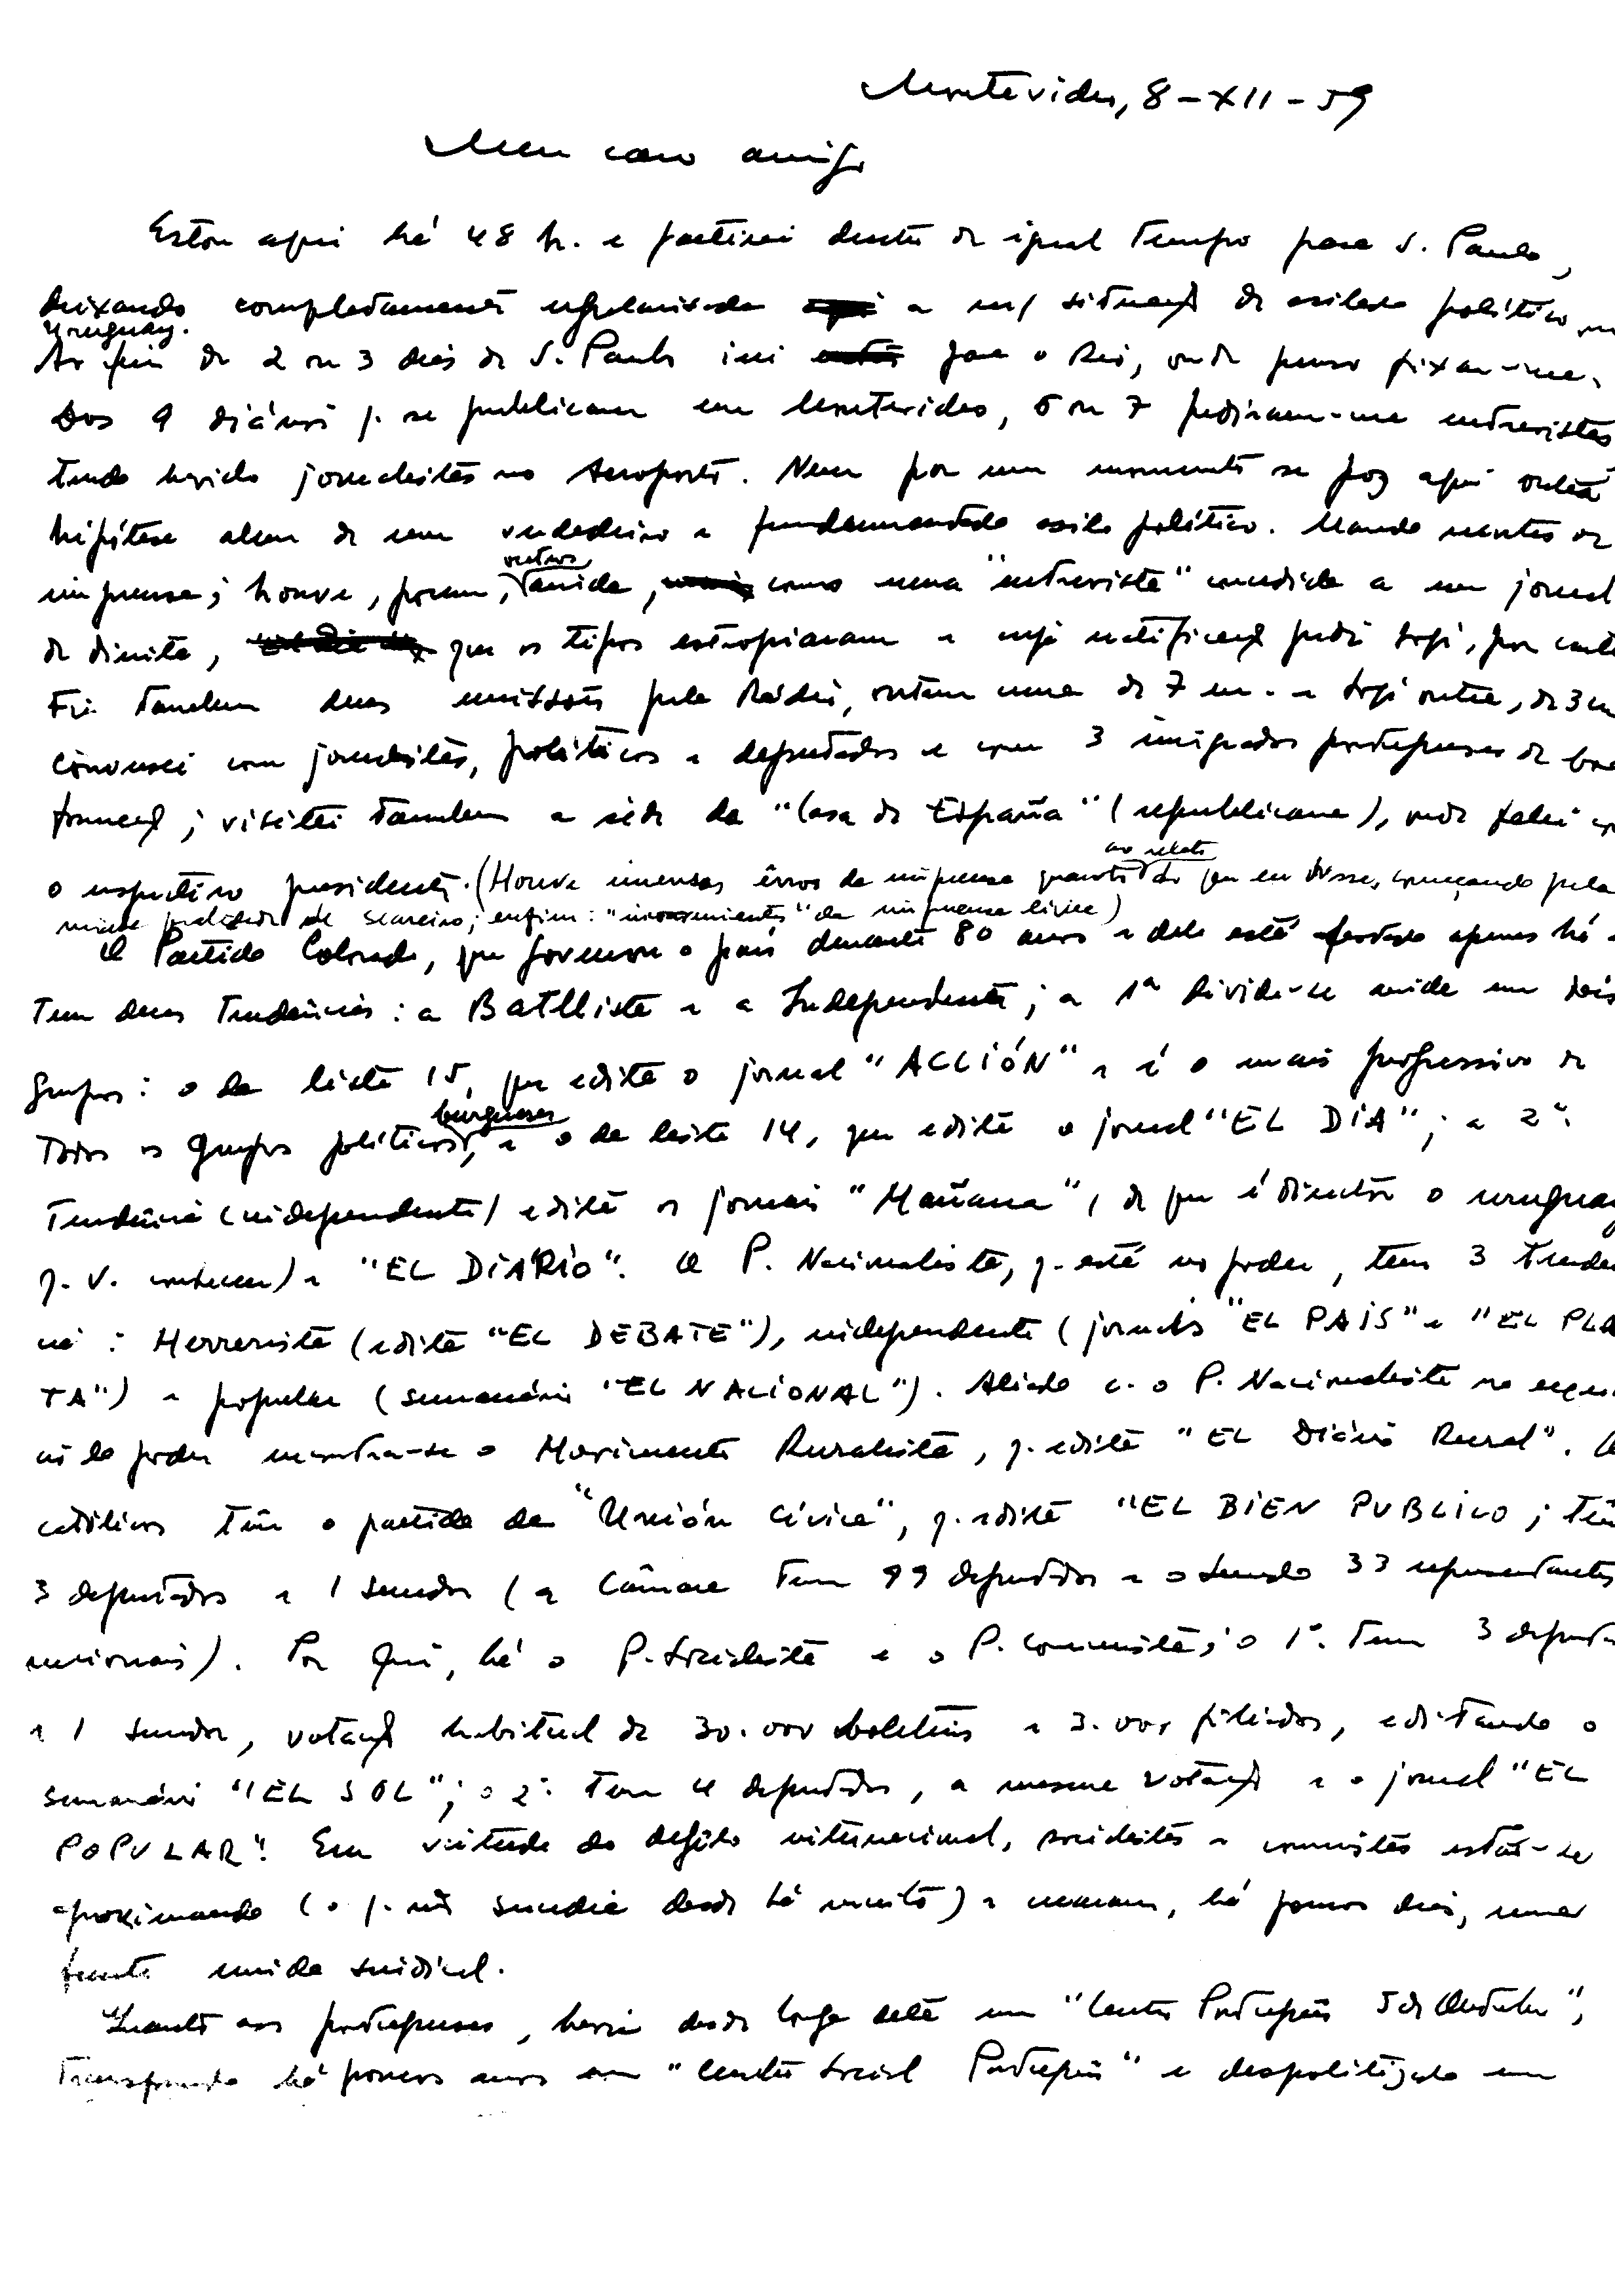 Montevideu, 8-XII-59
Meu caro amigo
Estou aqui há 48 h. e partirei dentro de igual tempo para S. Paulo,
deixando completamente regularizada a m/ situação de asilado político no
Uruguay.
Ao fim de 2 ou 3 dias de S. Paulo irei para o Rio, onde penso fixar-me.
Dos 9 diários q. se publicam em Montevideo, 6 ou 7 pediram-me entrevistas
tendo havido jornalistas no Aeroporto. Nem por um momento se poz aqui outra
hipótese alem de um verdadeiro e fundamentado asilo político. Mando recortes de
imprensa; houve, porem, outros ainda, como uma "entrevista" concedida a um jornal
de direita, que os tipos estropiaram e cuja rectificação pedi hoje, por carta
Fiz tambem duas emissões pela Rádio, ontem uma de 7 m. e hoje outra, de 3 m
Conversei com jornalistas, políticos e deputados e com 3 emigrados portugueses de boa
formação; visitei tambem a séde da "Casa de España" (republicana), onde falei com
o respectivo presidente. (Houve imensos êrros da imprensa quanto ao relato do que eu disse, começando pela
minha qualidade de seareiro; enfim: "inconvenientes" da imprensa livre)
O Partido Colorado, que governou o país durante 80 anos e dele está afastado apenas há
Tem duas tendências: a Batllista e a Independente; a 1ª divide-se ainda em dois
grupos: o da lista 15, que edita o jornal "ACCIÓN" e é o mais progressivo de
todos os grupos políticos burgueses, e o da lista 14, que edita o jornal "EL DIA"; a 2ª
Tendência (independente) edita os jornais "Mañana", (de que é director o uruguay
q. V. conheceu) e "EL DIÁRIO". O P. Nacionalista, q. está no poder, tem 3 tendên
cias: Herrerista (edita "EL DEBATE"), independente (jornais "EL PAÍS" e "EL PLA
TA") e popular (semanário "EL NACIONAL"). Aliado c. o P. Nacionalista no exercí
cio do poder encontra-se o Movimento Ruralista, q. edita "EL Diário Rural". Os
católicos têm o partido da "Unión Cívica", q. edita "EL BIEN PUBLICO; têm
3 deputados e 1 senador (a Câmara tem 99 deputados e o Senado 33 representantes
nacionais). Por fim, há o P. Socialista e o P. Comunista; o 1º. tem 3 deputados
e 1 senador, votação habitual de 30.000 boletins e 3.000 filiados, editando o
semanário "EL SOL"; o 2º tem 4 deputados, a mesma votação e o jornal "EL
POPULAR". Em virtude do degêlo internacional, socialistas e comunistas estão-se
aproximando (o q. não sucedia desde há muito) e criaram, há poucos dias, uma
frente unida sindical.
Quanto aos portugueses, havia desde longa data um "Centro Português 5 de Outubro",
transformado há poucos anos em "Centro Social Português" e despolitizado em